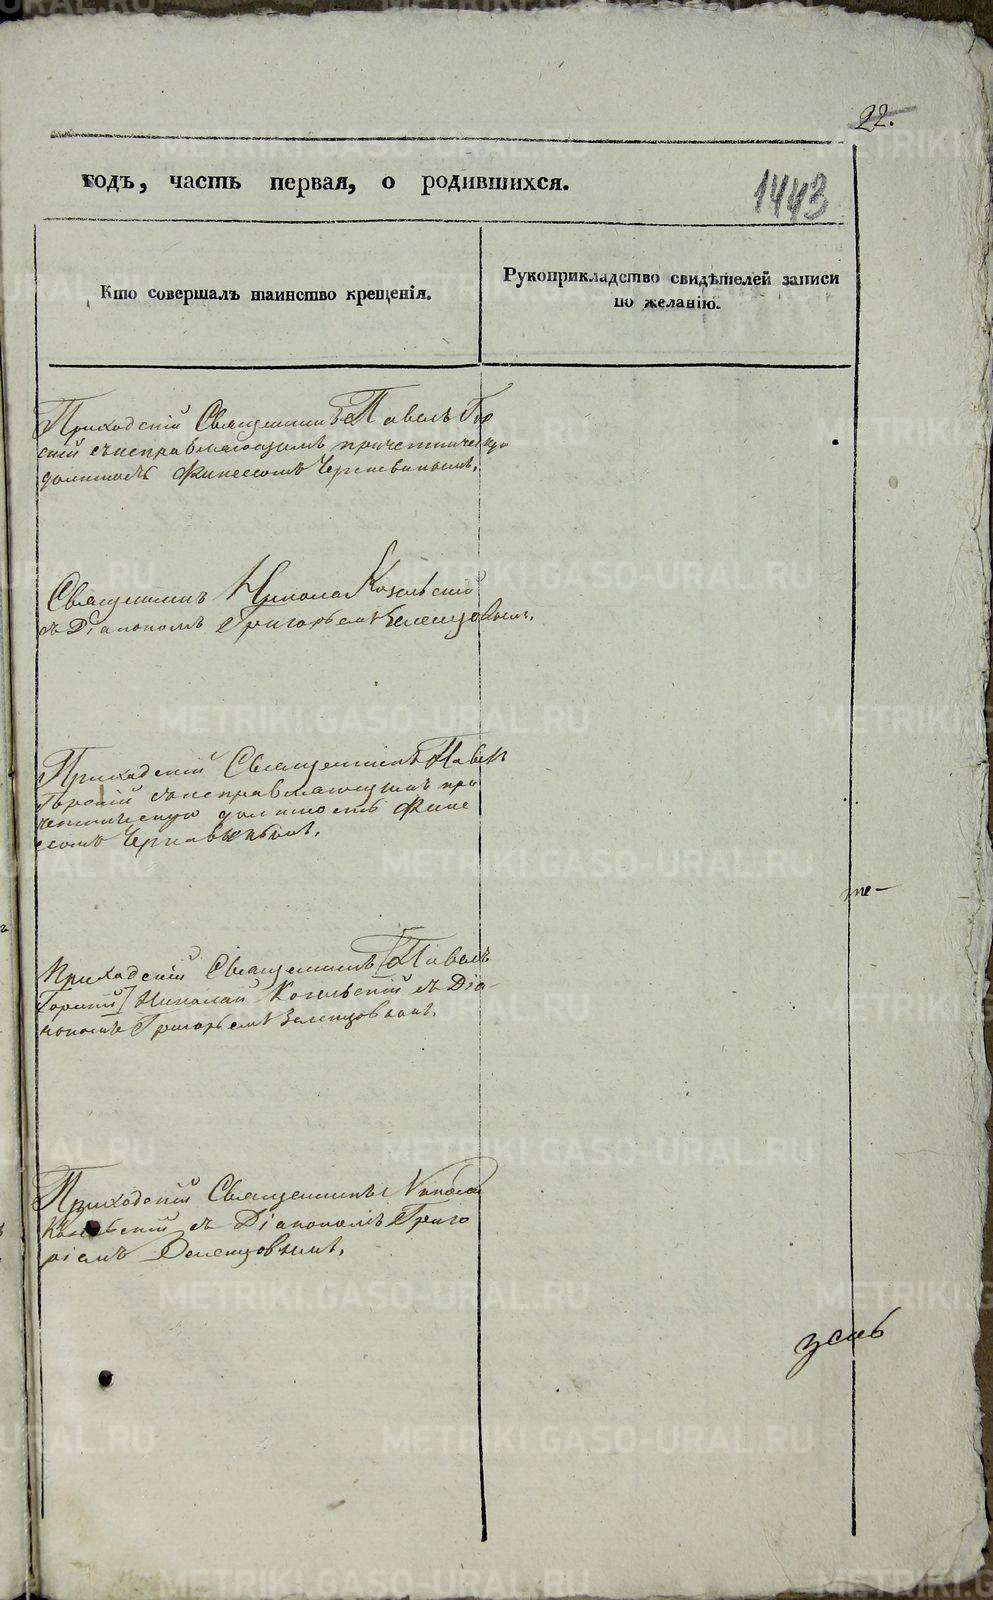 22.
годъ, часть первая, о родившихся.
1443
Кто совершалъ таинство крещенія.
Рукоприкладство свидѣтелей записи
по желанію.
Приходскій Священникъ Павелъ Гор
скій съ исправляющимъ причетническую
должность
Священникъ Николай Козельскій
съ Діакономъ Григорьемъ Зеленцовымъ.
Приходскій Священникъ Павелъ
Горскій съ исправляющимъ при
четническую должность
Приходскій Священникъ [Павелъ
Горскій] Николай Козельскій съ Діа-
кономъ Григорьемъ Зеленцовымъ.
Приходскій Священникъ Николай
Козельскій съ Діакономъ Григо
ріемъ Зеленцовымъ.
METRIKI.GASO-URAL.RU